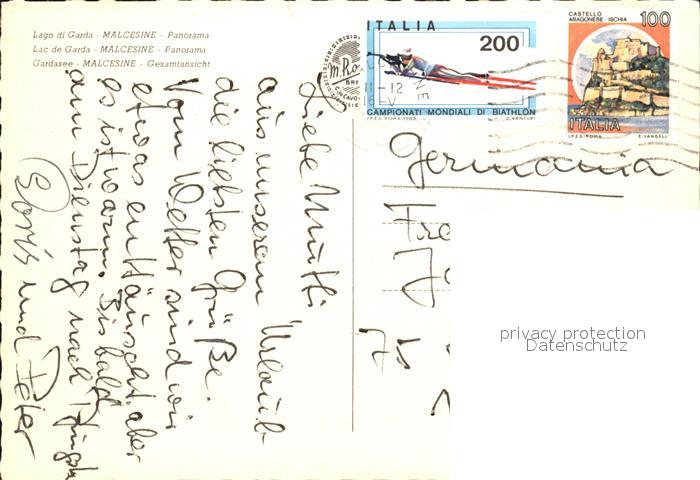 Lago di Garda - MALCESINE - Panorama
Lac de Garda - MALCESINE - Panorama
Gardasee - MALCESINE - Gesamtansicht
ITALIA
200
CAMPIONATI MONDIALI DI BIATHLON
I.P.Z.S. - ROMA - 1983
C. VENTURI
CASTELLO
ARAGONESE - ISCHIA
100
ITALIA
I.P.Z.S. - ROMA
E. VANGELLI
11-12
Germania
Fr
75
Liebe Mutti
aus unserem Urlaub
die liebsten Grüße.
Vom Wetter sind wir
etwas enttäuscht, aber
es ist warm. Bis bald
am Dienstag nach Pfingsten
Doris und Peter
privacy protection
Datenschutz